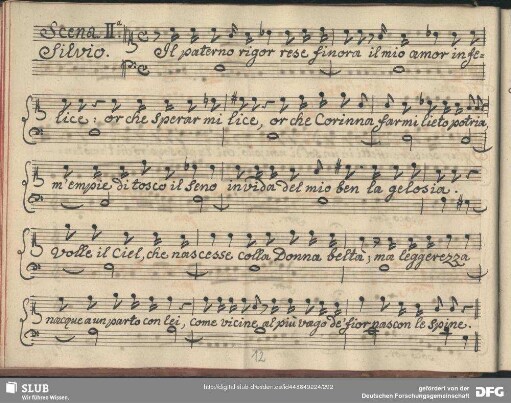 Scena II.a
Silvio. Il paterno rigor rese finora il mio amor infe=
lice: or che sperar mi lice, or che Corinna farmi lieto potria,
m'empie di tosco il seno invida del mio ben la gelosia.
Volle il Ciel, che nascesse colla Donna beltà; ma leggerezza
nacque a un parto con lei, come vicine al più vago de' fior nascon le spine.
12
SLUB
Wir führen Wissen.
gefördert von der
Deutschen Forschungsgemeinschaft
DFG